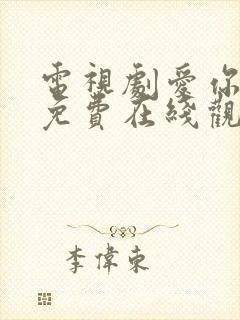 電視劇愛你
免費在綫觀
李偉東